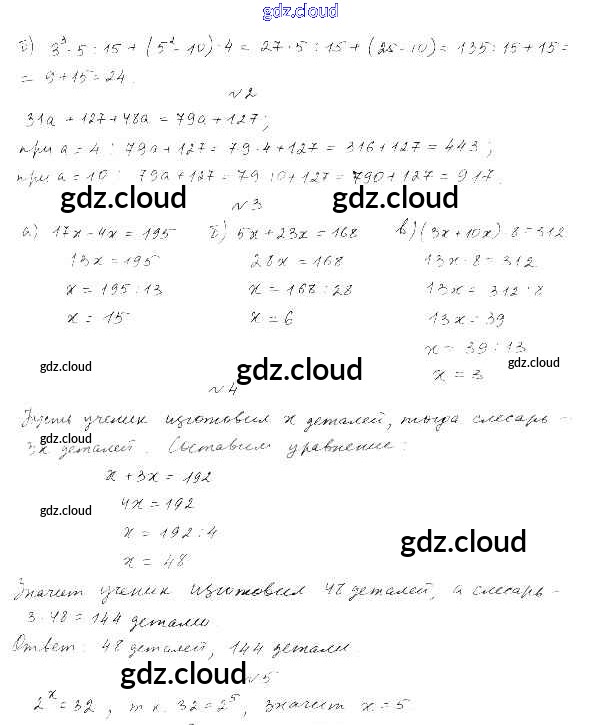 gdz.cloud
б) 3³·5:15+(5²-10)·4 = 27·5:15+(25-10)= 135:15+15=
= 9+15=24.
№2
31a+127+48a = 79a+127;
при a=4: 79a+127= 79·4+127=316+127=443;
при a=10: 79a+127=79·10+127=790+127=917.
gdz.cloud gdz.cloud
№3
а) 17x-4x=195 б) 5x+23x=168 в) (3x+10x)·8=312
13x=195 28x=168 13x·8=312
x=195:13 x=168:28 13x=312:8
x=15 x=6 13x=39
x=39:13
gdz.cloud gdz.cloud gdz.cloud
x=3
№4
Пусть ученик изготовил x деталей, тогда слесарь -
gdz.cloud
3x деталей. Составим уравнение:
x+3x=192
4x=192
gdz.cloud
x=192:4
gdz.cloud
x=48
Значит ученик изготовил 48 деталей, а слесарь -
3·48=144 детали
Ответ: 48 деталей, 144 детали.
gdz.cloud
№5
2ˣ=32, т.к. 32=2⁵, значит x=5